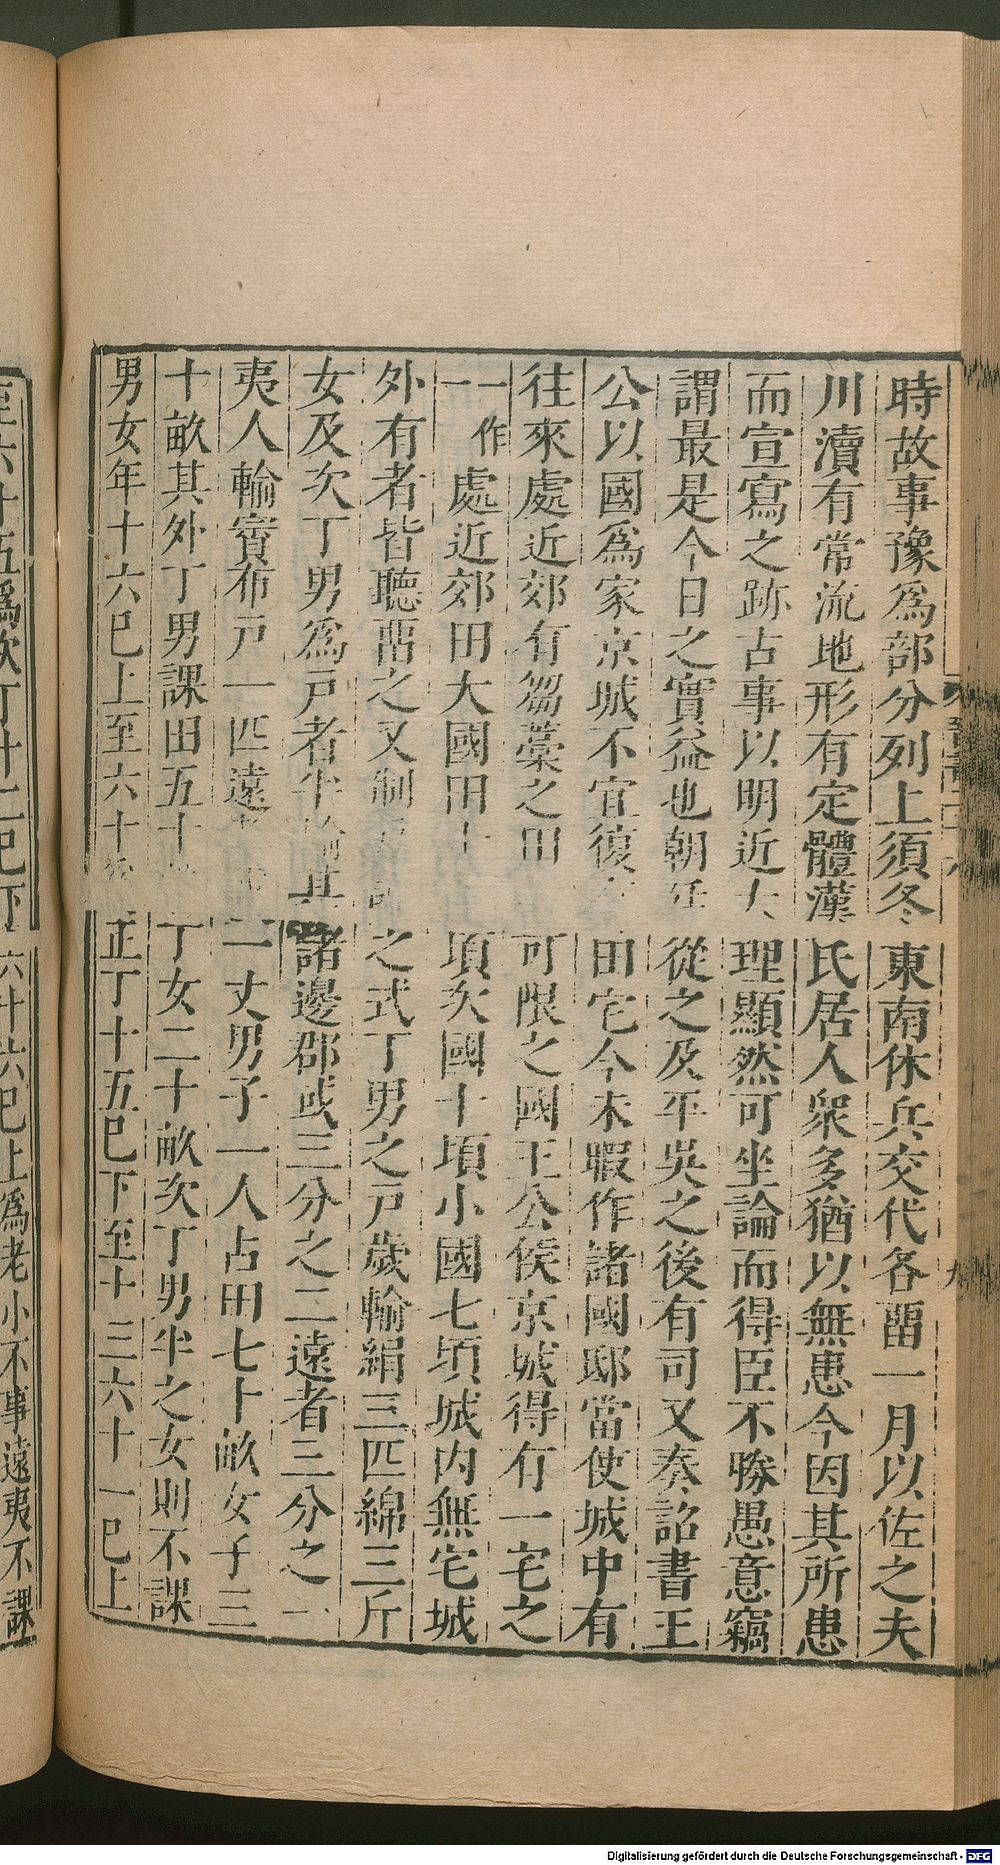 時故事豫爲部分列上須冬東南休兵交代各畱一月以佐之夫
川瀆有常流地形有定體漢氏居人衆多猶以無患今因其所患
而宣寫之跡古事以明近大理顯然可坐論而得臣不勝愚意竊
謂最是今日之實益也朝廷從之及平吳之後有司又奏詔書王
公以國爲家京城不宜復田宅今未暇作諸國邸當使城中有
往來處近郊有芻藁之田可限之國王公侯京城得有一宅之
一一作處近郊田大國田十頃次國十頃小國七頃城内無宅城
外有者皆聽畱之又制之式丁男之戸歲輸絹三匹綿三斤
女及次丁男爲戸者半輸其諸邊郡或三分之二遠者三分之一
夷人輸賨布戸一匹遠一丈男子一人占田七十畝女子三
十畝其外丁男課田五十丁女二十畝次丁男半之女則不課
男女年十六巳上至六十正丁十五巳下至十三六十一巳上
至六十五爲次丁十二巳下六十六巳上爲老小不事遠夷不課
Digitalisierung gefördert durch die Deutsche Forschungsgemeinschaft - DFG